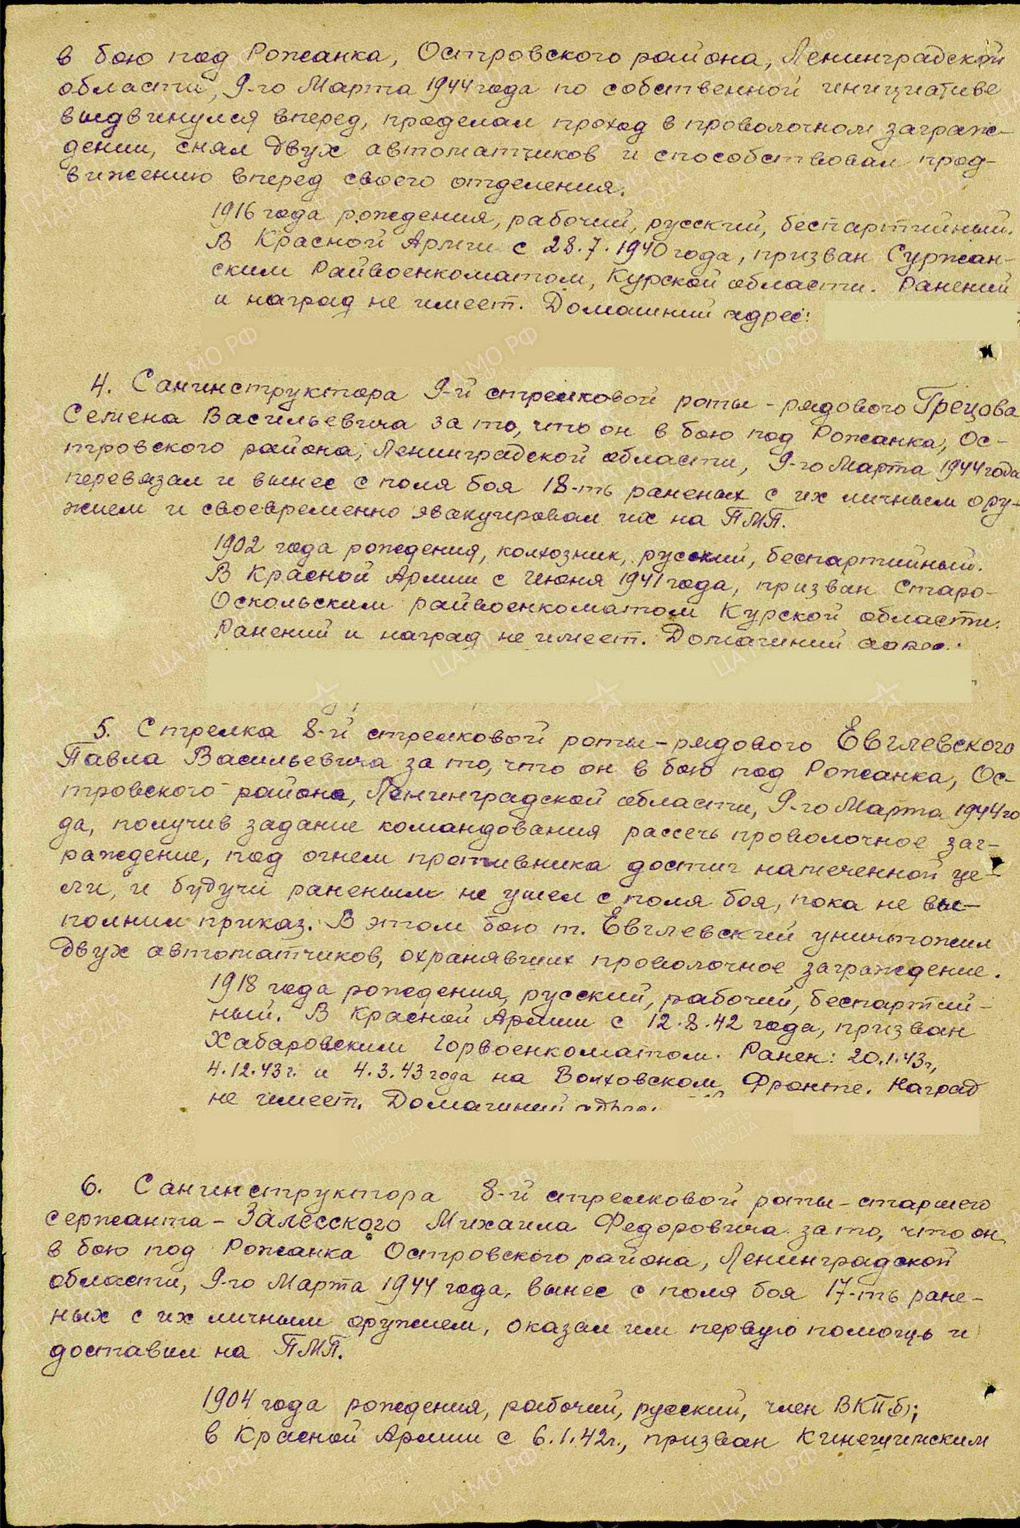 в бою под Рожанка, Островского района, Ленинградской
области, 9-го Марта 1944 года по собственной инициативе
выдвинулся вперед, проделал проход в проволочном заграж-
дении, снял двух автоматчиков и способствовал прод-
вижению вперед своего отделения.
1916 года рождения, рабочий, русский, беспартийный.
В Красной Армии с 28.7.1940 года, призван Суржан-
ским Райвоенкоматом, Курской области. Ранений
и наград не имеет. Домашний адрес:
4. Санинструктора 9-й стрелковой роты - рядового Грецова
Семена Васильевича за то, что он в бою под Рожанка, Ос-
тровского района, Ленинградской области, 9-го Марта 1944 года
перевязал и вынес с поля боя 18-ть раненых с их личным ору-
жием и своевременно эвакуировал их на ПМП.
1902 года рождения, колхозник, русский, беспартийный.
В Красной Армии с Июня 1941 года, призван Старо-
Оскольским райвоенкоматом Курской области.
Ранений и наград не имеет. Домашний адрес:
5. Стрелка 8-й стрелковой роты - рядового Евглевского
Павла Васильевича за то, что он в бою под Рожанка, Ос-
тровского района, Ленинградской области, 9-го Марта 1944 го
да, получив задание командования рассечь проволочное заг-
раждение, под огнем противника достиг намеченной це-
ли, и будучи раненым не ушел с поля боя, пока не вы-
полнил приказ. В этом бою т. Евглевский уничтожил
двух автоматчиков, охранявших проволочное заграждение.
1918 года рождения, русский, рабочий, беспартий-
ный. В Красной Армии с 12.8.42 года, призван
Хабаровским Горвоенкоматом. Ранен: 20.1.43г,
4.12.43г. и 4.3.43 года на Волховском Фронте. Наград
не имеет. Домашний адрес:
6. Санинструктора 8-й стрелковой роты - старшего
сержанта - Залесского Михаила Федоровича за то, что он
в бою под Рожанка Островского района, Ленинградской
области, 9-го Марта 1944 года, вынес с поля боя 17-ть ране-
ных с их личным оружием, оказал им первую помощь и
доставил на ПМП.
1904 года рождения, рабочий, русский, член ВКП(б);
в Красной Армии с 6.1.42г., призван Кинешемским